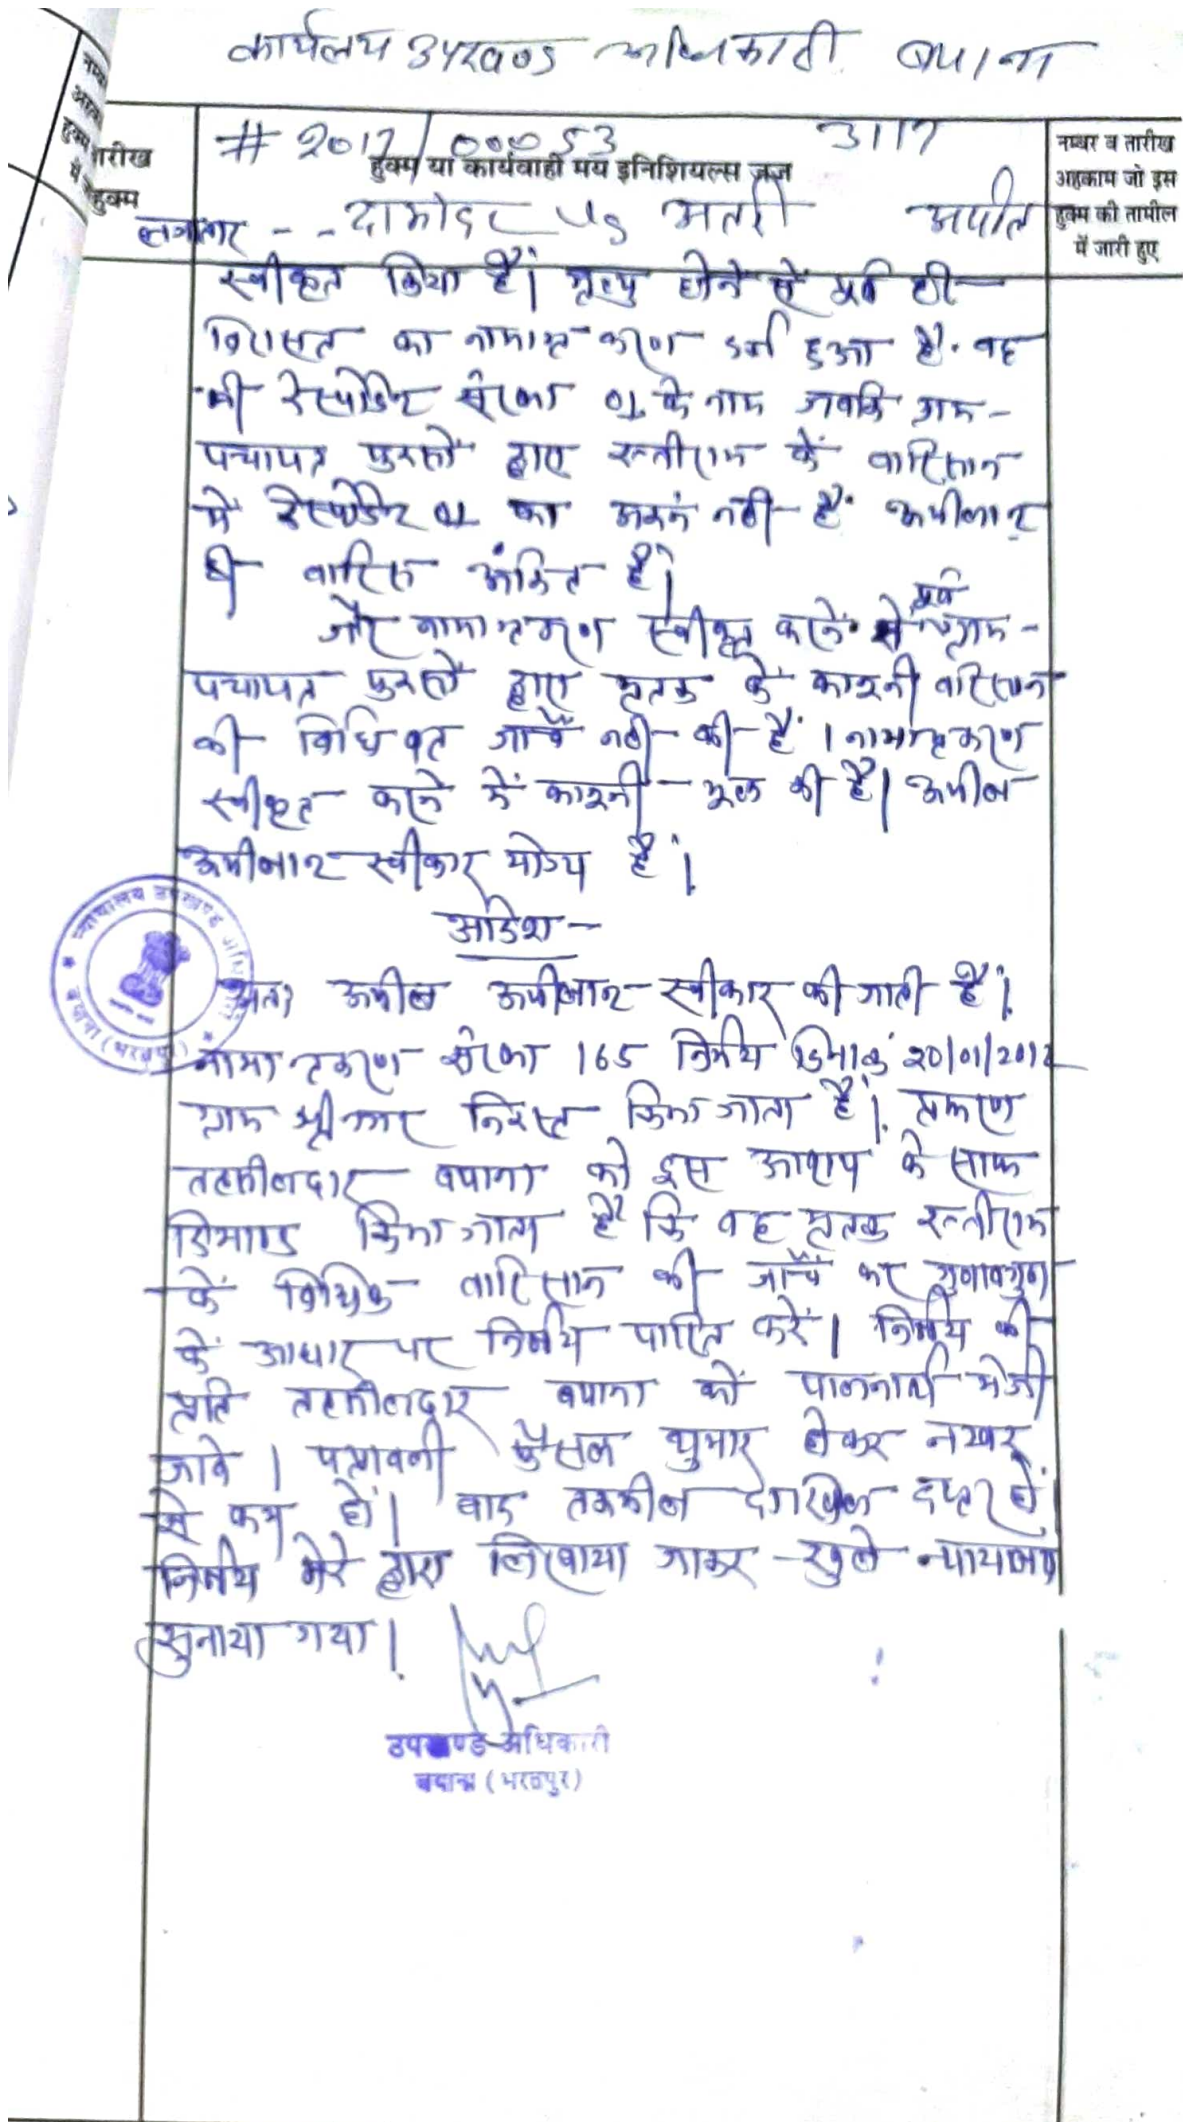 कार्यलय उपखण्ड अधिकारी बयाना
# 2017/00053 3117
तारीख हुक्म
हुक्म या कार्यवाही मय इनिशियल्स जज
नम्बर व तारीख अहकाम जो इस हुक्म की तामील में जारी हुए
लगातार - - दामोदर Vs अपील
स्वीकृत किया है। मृत्यु होने से पूर्व ही
विरासत का नामान्तकरण दर्ज हुआ है. वह
भी रेस्पोडेन्ट संख्या 01 के नाम जबकि ग्राम-
पंचायत द्वारा रत्तीराम के वारिसान
में रेस्पोडेन्ट 01 का नही है. अपीलान्ट
ही वारिस अंकित है।
और नामान्तकरण स्वीकृत करने से पूर्व ग्राम-
पंचायत द्वारा मृतक के कानूनी वारिसान
की विधिवत जाँच नही की है। नामान्तकरण
स्वीकृत करने में कानूनी भूल की है। अपील
अपीलान्ट स्वीकार योग्य है।
आदेश-
अतः अपील अपीलान्ट स्वीकार की जाती है।
नामान्तकरण संख्या 165 निर्णय दिनांक 20/01/2012
ग्राम निरस्त किया जाता है। प्रकरण
तहसीलदार बयाना को इस आशय के साथ
रिमाण्ड किया जाता है कि वह मृतक रत्तीराम
के विधिक वारिसान की जाँच कर गुणावगुण
के आधार पर निर्णय पारित करें। निर्णय की
प्रति तहसीलदार बयाना को पालनार्थ भेजी
जावे। पत्रावली फैसल शुमार होकर नम्बर
से कम हो। बाद तकमील दाखिल दफ्तर हो।
निर्णय मेरे द्वारा लिखवाया जाकर खुले न्यायालय
सुनाया गया।
न्यायालय उपखण्ड अधिकारी
बयाना (भरतपुर)
उपखण्ड अधिकारी
बयाना (भरतपुर)